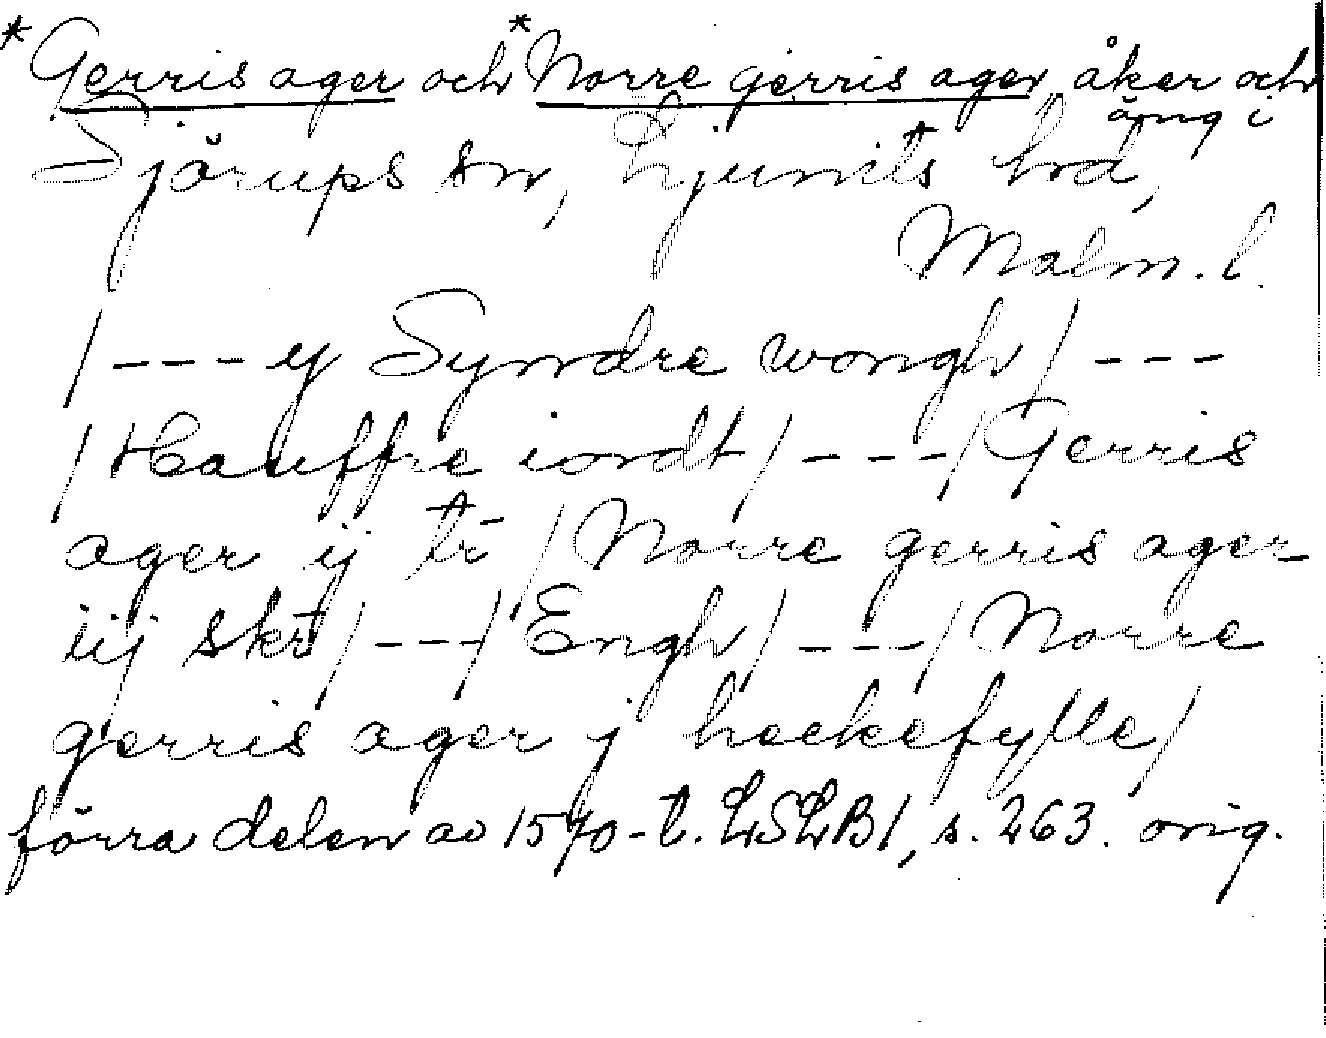 *Gerris ager och *Norre gerris ager, åker och
äng i
Sjörups sn, Ljunits hd,
Malm. l.
/---ij Syndre wongh/---
/Hauffre iordt/---/Gerris
ager ij tr̄/Norre gerris ager
iij skr̄/---/Engh/---/Norre
gerris ager j heckefylle/
förra delen av 1570-t. LSLB1, s. 263. orig.